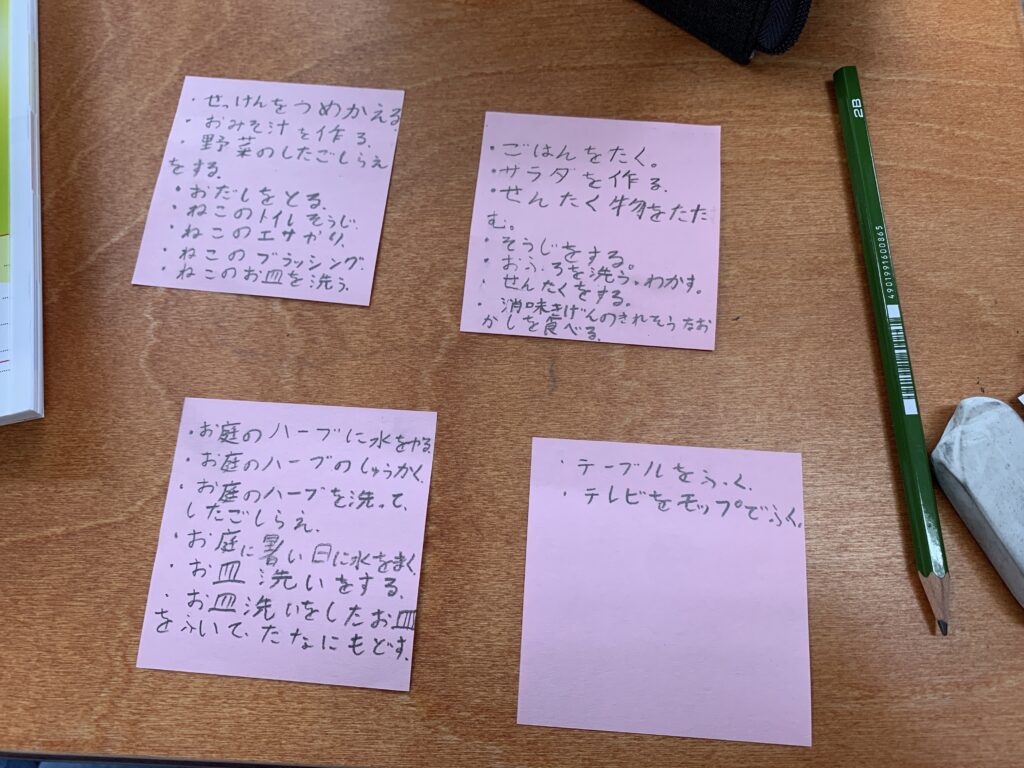 ・せっけんをつめかえる
・おみそ汁を作る。
・野菜のしたごしらえ
をする。
・おだしをとる。
・ねこのトイレそうじ。
・ねこのエサがり。
・ねこのブラッシング。
・ねこのお皿を洗う。
・ごはんをたく。
・サラダを作る。
・せんたく物をたた
む。
・そうじをする。
・おふろを洗う。わかす。
・せんたくをする。
・消味きげんのきれそうなお
かしを食べる。
・お庭のハーブに水をやる。
・お庭のハーブのしゅうかく。
・お庭のハーブを洗って、
したごしらえ。
・お庭に暑い日に水をまく。
・お皿洗いをする。
・お皿洗いをしたお皿
をふいて、たなにもどす。
・テーブルをふく。
・テレビをモップでふく。
2B
4901991600865